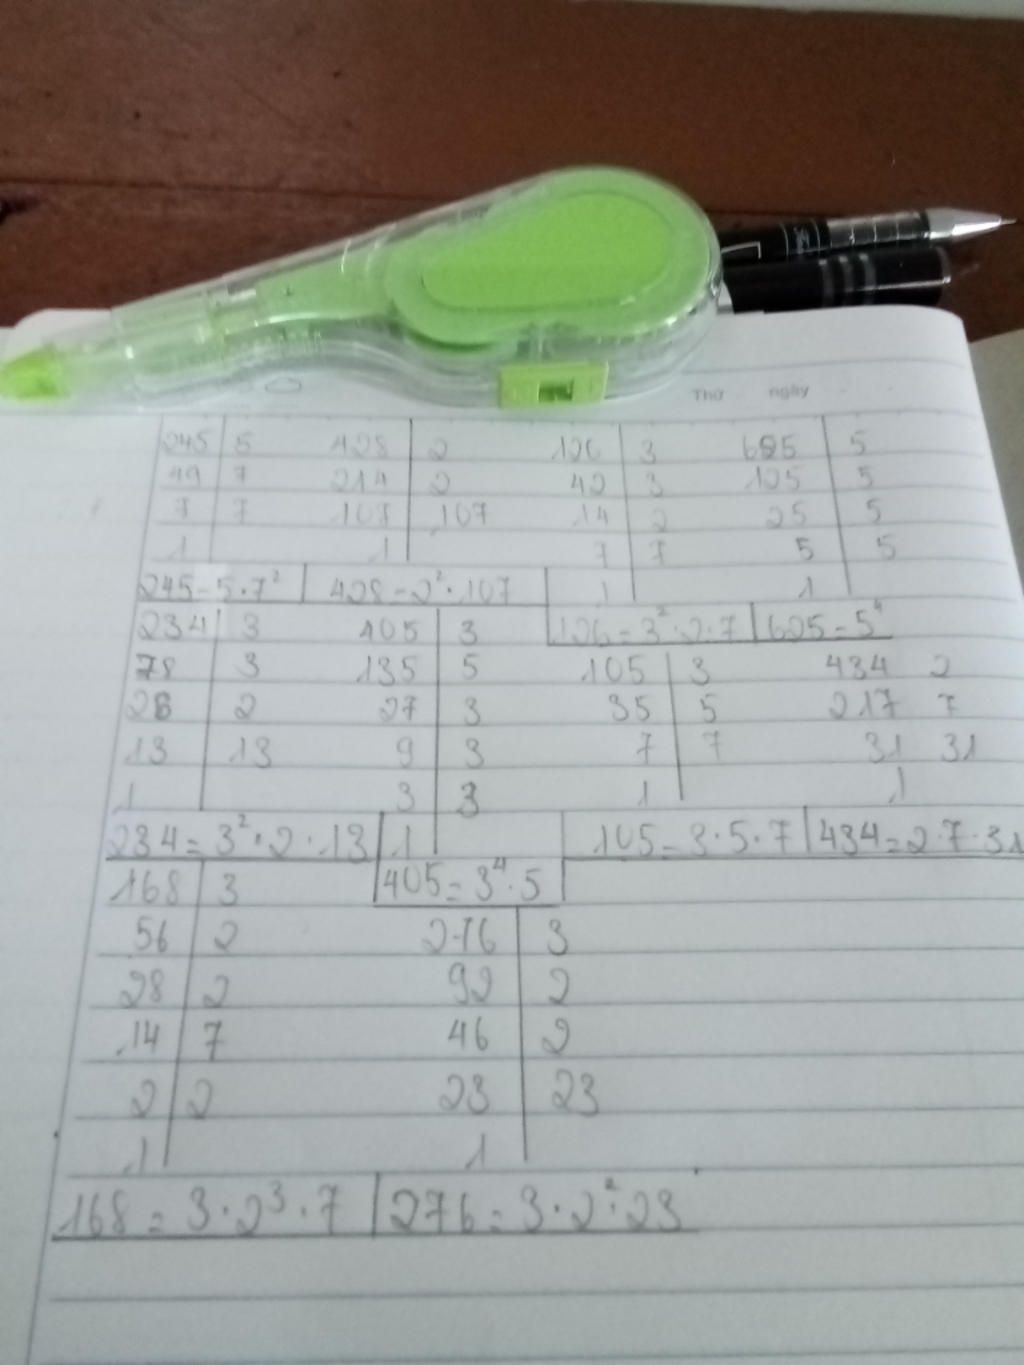 Thứ ngày
245 5 428 2 126 3 625 5
49 7 214 2 42 3 125 5
7 7 107 107 14 2 25 5
1 1 7 7 5 5
245 = 5 · 7² 428 = 2² · 107 1 1
234 3 405 3 126 = 3² · 2 · 7 625 = 5⁴
78 3 135 5 105 3 434 2
26 2 27 3 35 5 217 7
13 13 9 3 7 7 31 31
1 3 3 1 1
234 = 3² · 2 · 13 1 105 = 3 · 5 · 7 434 = 2 · 7 · 31
168 3 405 = 3⁴ · 5
56 2 276 3
28 2 92 2
14 7 46 2
2 2 23 23
1 1
168 = 3 · 2³ · 7 276 = 3 · 2² · 23